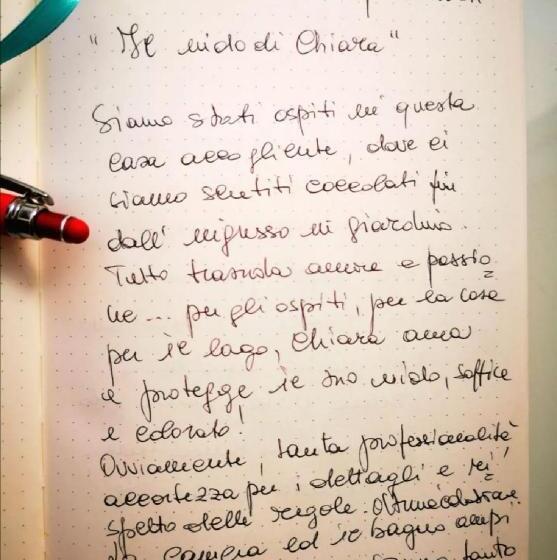 "Il nido di Chiara"
Siamo stati ospiti in questa
casa accogliente, dove ci
siamo sentiti coccolati fin
dall'ingresso in giardino.
Tutto trasuda amore e passio
ne ... per gli ospiti, per la casa
per il lago, Chiara ama
e protegge il suo nido, soffice
e colorato!
Ovviamente, tanta professionalità
accortezza per i dettagli e ri
spetto delle regole. Ottima colazione
camera ed il bagno ampi
tanto